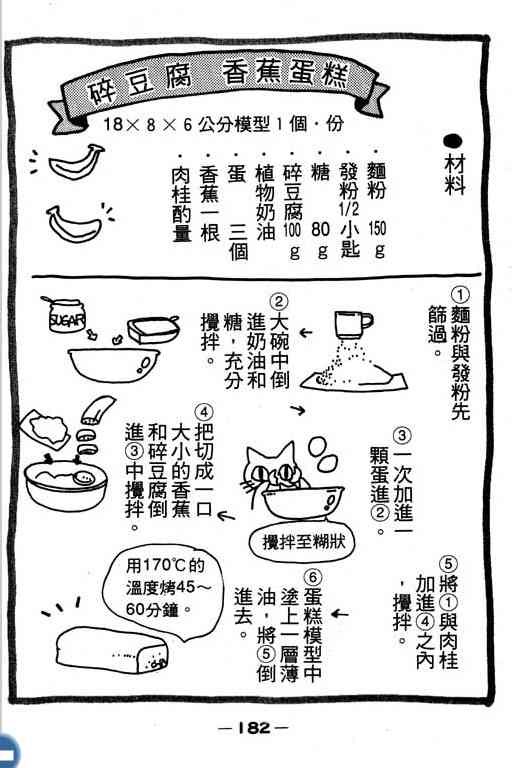 碎豆腐 香蕉蛋糕
18×8×6公分模型1個·份
●材料
·麵粉 150g
·發粉1/2小匙
·糖 80g
·碎豆腐100g
·植物奶油
·蛋 三個
·香蕉一根
·肉桂酌量
①麵粉與發粉先
篩過。
②大碗中倒
進奶油和
糖，充分
攪拌。
SUGAR
③一次加進一
顆蛋進②。
攪拌至糊狀
④把切成一口
大小的香蕉
和碎豆腐倒
進③中攪拌。
⑤將①與肉桂
加進④之內
，攪拌。
⑥蛋糕模型中
塗上一層薄
油，將⑤倒
進去。
用170℃的
溫度烤45～
60分鐘。
－182－